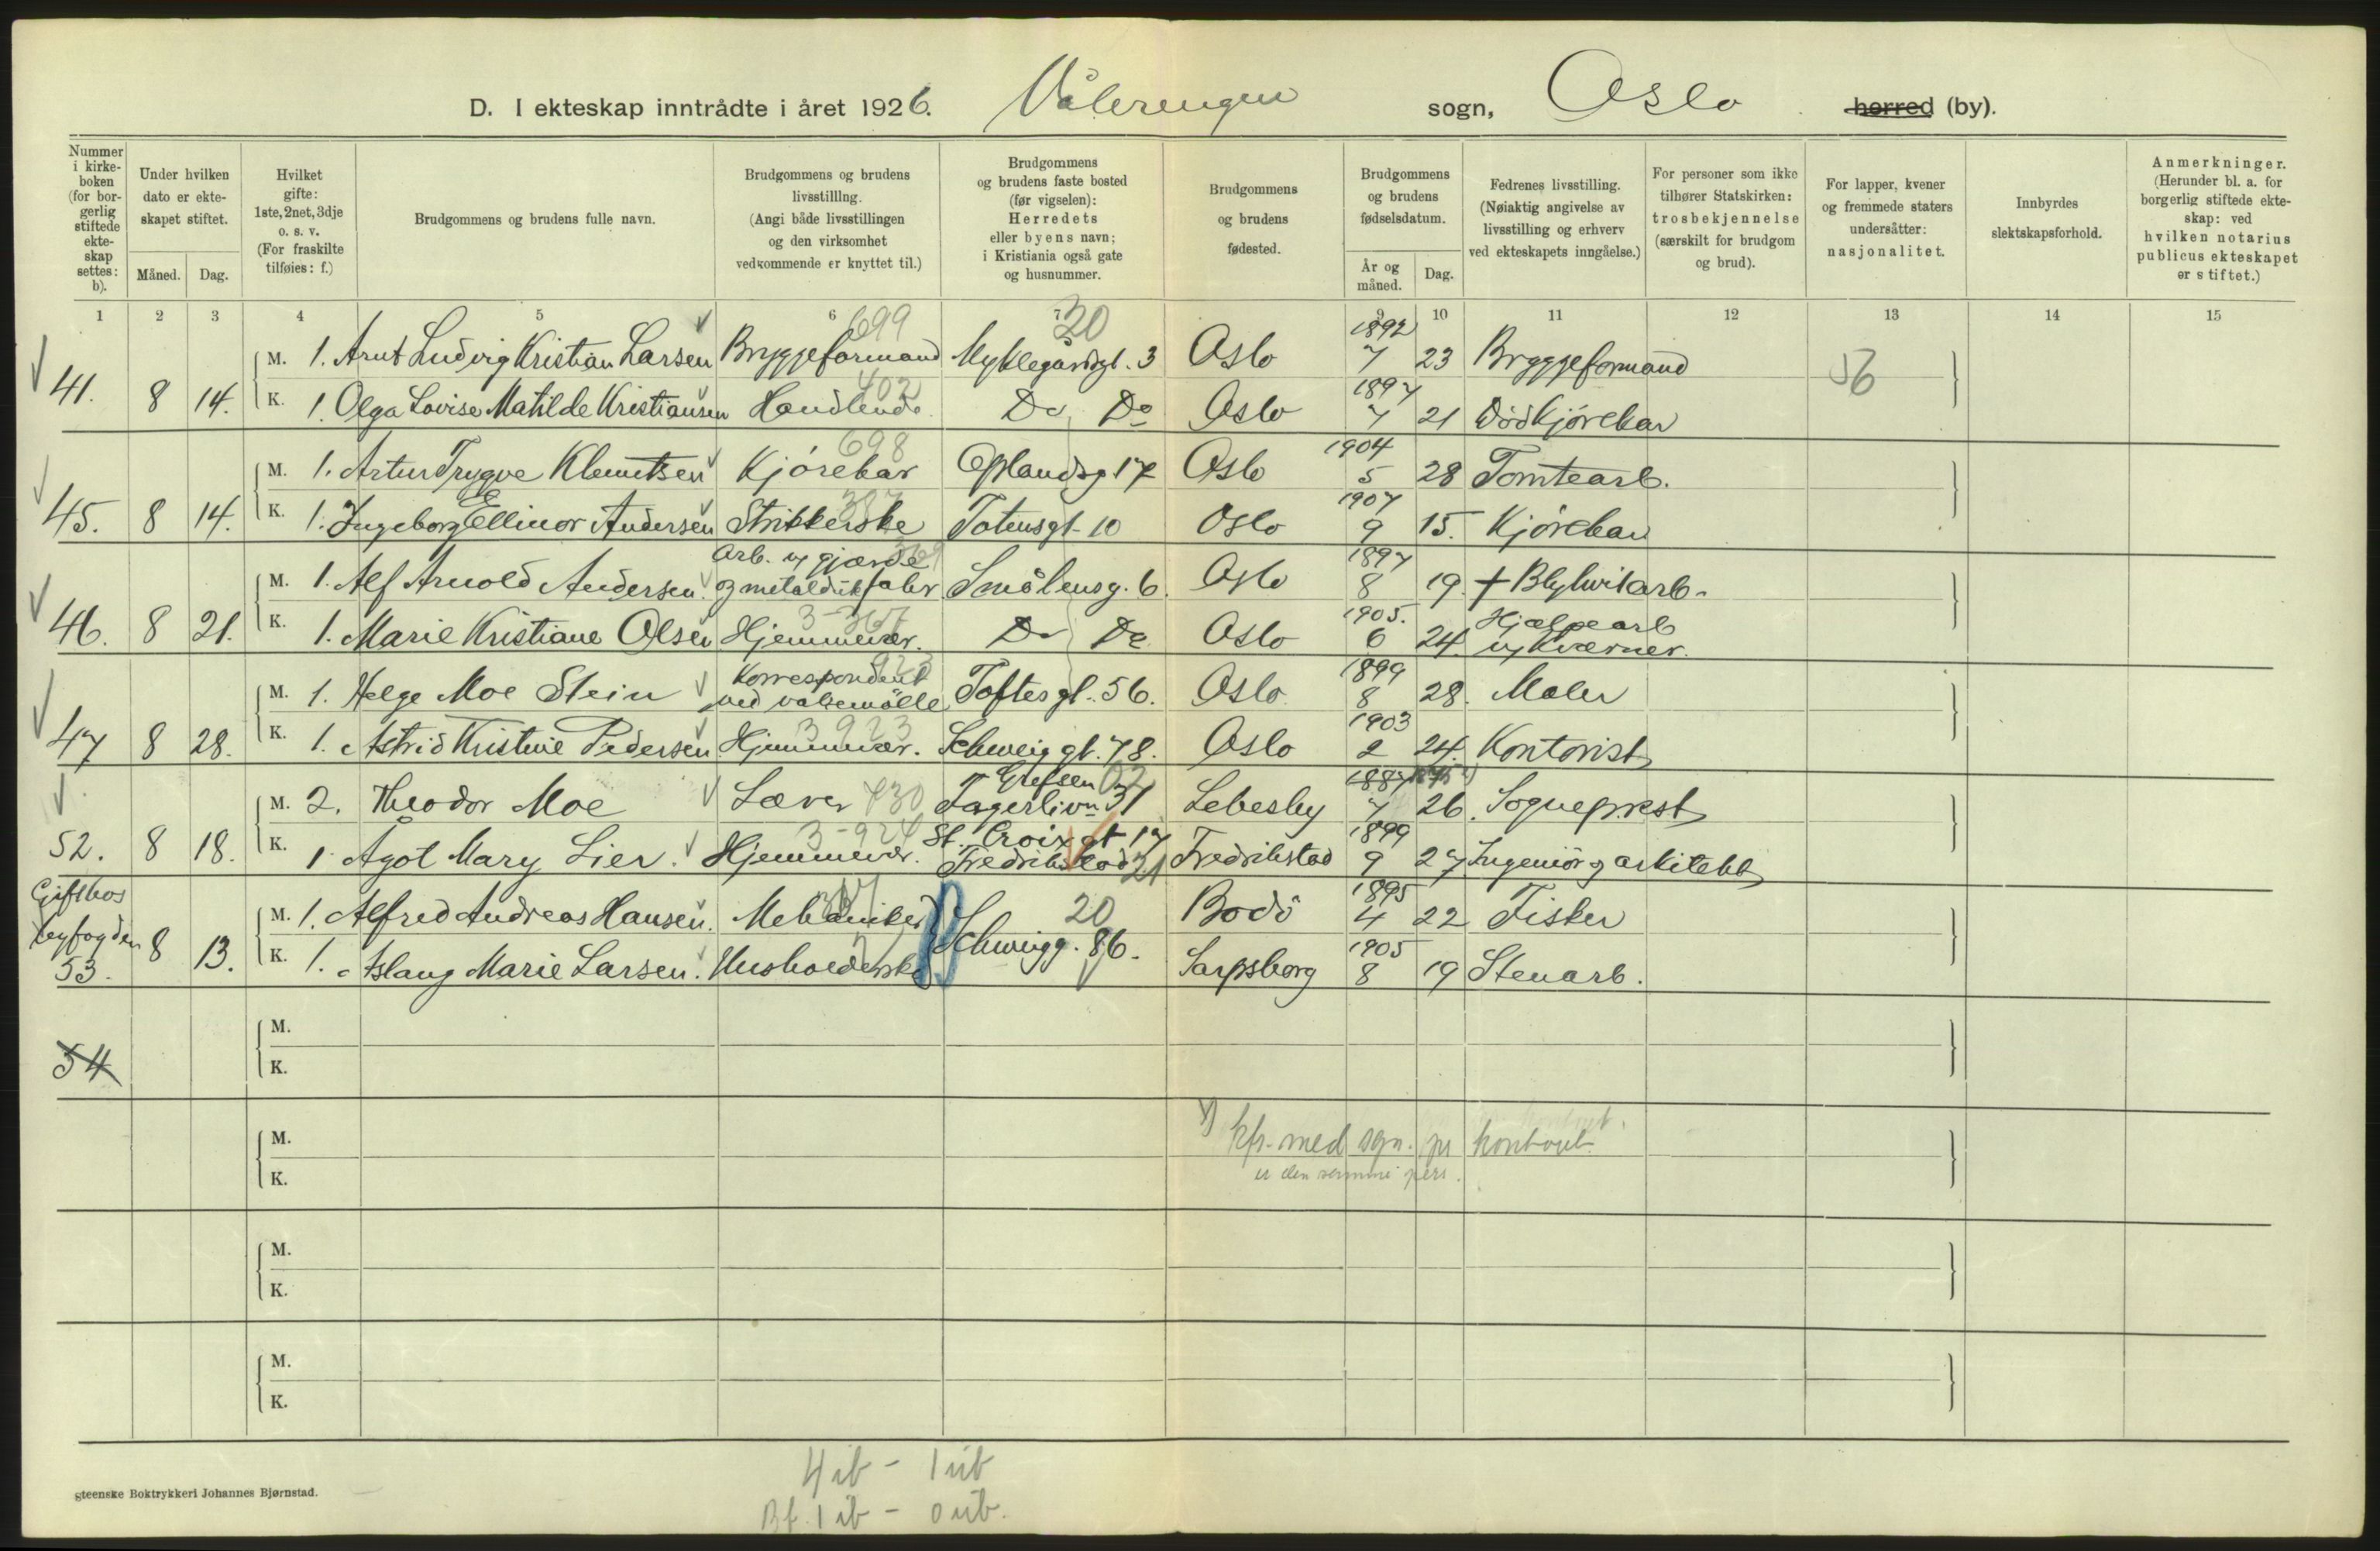 D. I ekteskap inntrådte i året 1926. Vålerengen sogn, Oslo herred (by).
Nummer i kirke-boken (for bor-gerlig stiftede ekte-skap settes: b).
Under hvilken dato er ekte-skapet stiftet.
Måned. Dag.
Hvilket gifte: 1ste, 2net, 3dje o. s. v. (For fraskilte tilføies: f.)
Brudgommens og brudens fulle navn.
Brudgommens og brudens livsstilllng. (Angi både livsstillingen og den virksomhet vedkommende er knyttet til.)
Brudgommens og brudens faste bosted (før vigselen): Herredets eller byens navn; i Kristiania også gate og husnummer.
Brudgommens og brudens fødested.
Brudgommens og brudens fødselsdatum.
År og måned. Dag.
Fedrenes livsstilling. (Nøiaktig angivelse av livsstilling og erhverv ved ekteskapets inngåelse.)
For personer som ikke tilhører Statskirken: trosbekjennelse (særskilt for brudgom og brud).
For lapper, kvener og fremmede staters undersåtter: nasjonalitet.
Innbyrdes slektskapsforhold.
Anmerkninger. (Herunder bl. a. for borgerlig stiftede ekte-skap: ved hvilken notarius publicus ekteskapet er stiftet.)
1 2 3 4 5 6 7 8 9 10 11 12 13 14 15
699 20 1892
M. 1. Arnt Ludvig Kristian Larsen Bryggeformand Myklegårdsgt. 3 Oslo 7 23 Bryggeformand 56
41. 8 14. 402 1897
K. 1. Olga Lovise Matilde Kristiansen Handlende Do Do Oslo 7 21 Död kjörekar
698 1904
M. 1. Artur Trygve Klemetsen Kjörekar Oplandsg 17 Oslo 5 28 Tomtearb.
45. 8 14. 1907
K. 1. Ingeborg Ellinor Andersen Strikkerske Totensgt. 10 Oslo 9 15. Kjörekar
Arb. v gjærde 369 1897
M. 1. Alf Arnold Andersen og metalduk fabr. Smålensg. 6. Oslo 8 19. + Blyhvitarb.
46. 8 21. 3-367 1905. Hjælpearb
K. 1. Marie Kristiane Olsen Hjemmevær. Do Do Oslo 6 24. v/ Kværner.
Korrespondent 923 1899
M. 1. Helge Moe Stein ved valsemölle Toftesgt. 56. Oslo 8 28. Maler
47 8 28. 3 923 1903
K. 1. Astrid Kristine Pedersen Hjemmevær. Schweigg gt. 78. Oslo 2 24. Kontorist
Grefsen 02 1887
M. 2. Theodor Moe Lærer 730 Fagerlivn 31 Lebesby 7 26. Sogneprest
52. 8 18. 3-924 St. Croixgt 17 1899
K. 1 Ågot Mary Lier. Hjemmevær. Fredrikstad 21 Fredrikstad 9 27 Ingeniör og arkitekt
Gift hos 20 1895
M. 1. Alfred Andreas Hansen. Mekaniker Bodö 4 22 Fisker
byfogden 8 13. Schweigg. 86. 1905
53. K. 1. Aslaug Marie Larsen. Husholderske Sarpsborg 8 19 Stenarb.
M.
54
K.
kfr. med sgn. pr kontoret
M.
K. er den samme pers.
M.
K.
M.
K.
4 ib - 1 ub
Bf. 1 ib - 0 ub.
gteenske Boktrykkeri Johannes Bjørnstad.